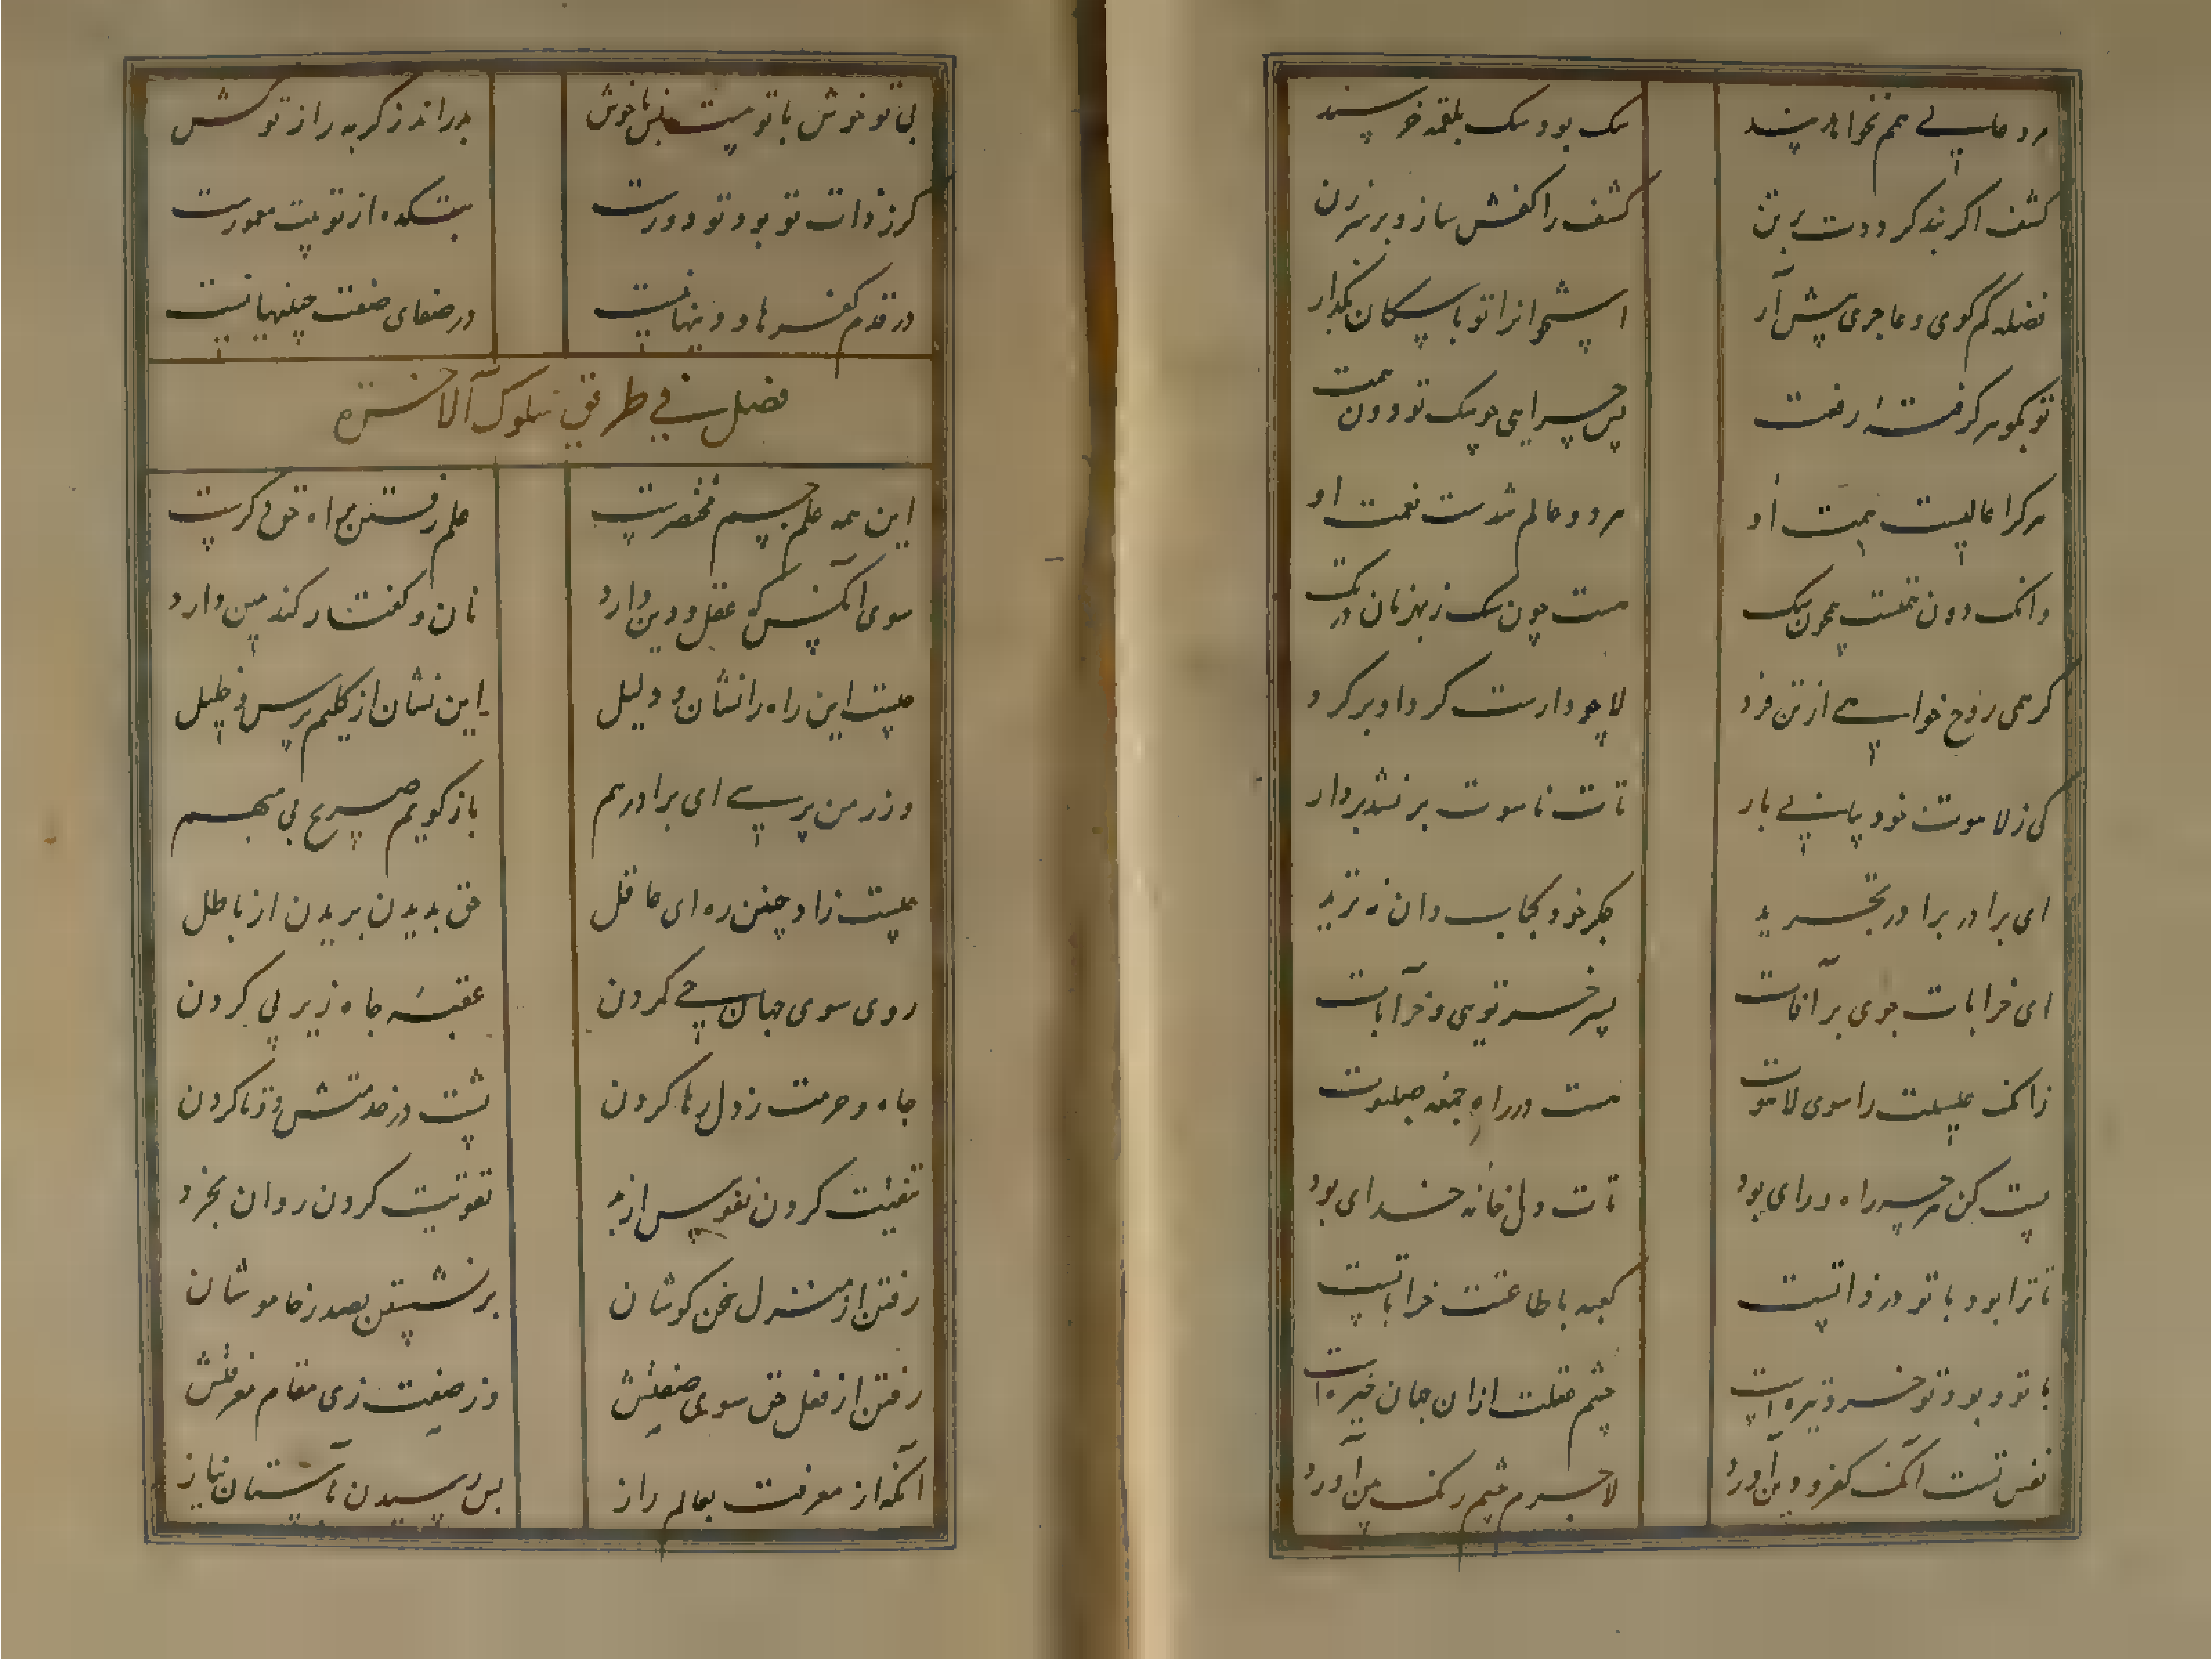 مرد عالی همم نخواهد بند سک بود سک بلقمه خرسند
کشف اکر بند کرددت بر تن کشف را کفش ساز و بر سر زن
فضله کم کوی و عاجزی پیش آر استخوانرا تو با سکان بکذار
تو بکوهر کرفتهٔ رفعت پس چرایی چو سک تو دون همت
هر کرا عالیست همت او هر دو عالم شدست نعمت او
وانک دون همتست همچون سک هست چون سک ز بهر نان در تک
کر همی روح خواهی از تن فرد لا چو دارست کرد او بر کرد
کی ز لاهوت خود بیابی بار تات ناسوت بر نشد بر دار
ای برادر برا در تجرید جکر خود کباب دان نه ثرید
ای خرابات جوی پر آفات پسر خر تویی و خر آبات
زانک عیسیت را سوی لاهوت هست در راه جمعه صلبوت
پست کن هرچه راه و رای بود تات دل خانه خدای بود
تا ترا بود با تو در ذاتست کعبه با طاعتت خراباتست
با تو و بود تو خرد تیره است چشم عقلت ازان جهان خیره است
نفس تست آنک کفر و دین آورد لاجرم چشم رنک بین آورد
بی تو خوش با تو هست بس ناخوش بدر انداز کربه را از توکش
کر ز ذات تو بود تو دورست بتکده از تو بیت معمورست
در قدم کفرها و دینها نیست در صفای صفت چنینها نیست
فصل فی طریق سلوک الآخرة
این همه علم جسم مختصرست علم رفتن براه حق دکرست
سوی آنکس که عقل و دین دارد نان و کفتار کندمین دارد
چیست این راه را نشان و دلیل این نشان از کلیم پرس و خلیل
ور ز من پرسی ای برادر هم باز کویم صریح بی مبهم
چیست زاد چنین ره ای عاقل حق بدیدن بریدن از باطل
روی سوی جهان حی کردن عقبهٔ جاه زیر پی کردن
جاه و حرمت ز دل رها کردن پشت در خدمتش دو تا کردن
تنقیت کردن نفوس از بد تقویت کردن روان بخرد
رفتن از منزل سخن کوشان بر نشستن بصدر خاموشان
رفتن از فعل حق سوی صفتش وز صفت زی مقام معرفتش
آنکه از معرفت بعالم راز پس رسیدن بآستان نیاز